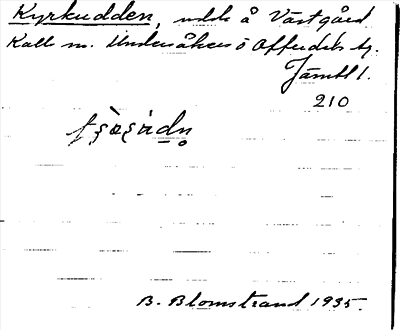 Kyrkudden, udde å Västgård
Kall m. Undersåkers o Offerdals tg.
Jämtl l.
210
B. Blomstrand 1935.